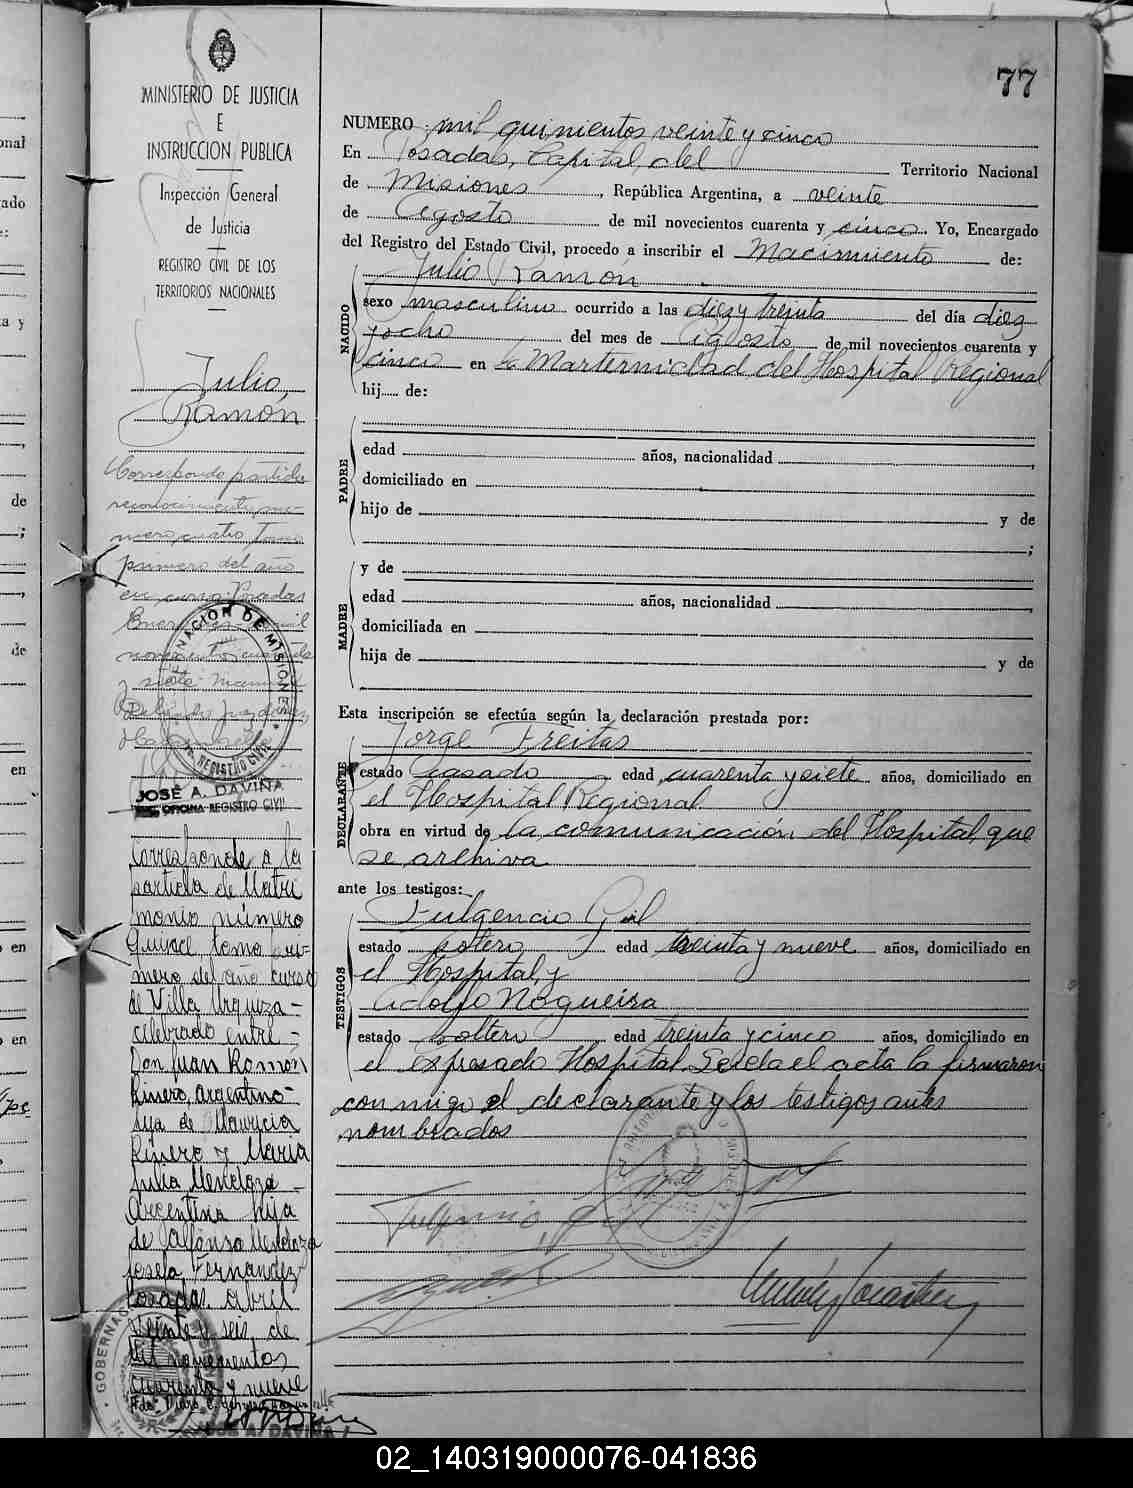 77
MINISTERIO DE JUSTICIA
E
INSTRUCCION PUBLICA
Inspección General
de Justicia
REGISTRO CIVIL DE LOS
TERRITORIOS NACIONALES
Julio
Ramón
Corresponde partida
reconocimiento nú-
mero cuatro tomo
primero del año
en curso. Posadas
Enero mil
novecientos cuarenta
y siete
GOBERNACION DE MISIONES
REGISTRO CIVIL
JOSÉ A. DAVIÑA
OFICINA REGISTRO CIVIL
Corresponde a la
partida de Matri
monio número
Quince, tomo pri-
mero del año curso
de Villa Urquiza -
celebrado entre -
Don Juan Ramon
Rivero, argentino-
hijo de Mauricia
Rivero y Maria
Julia Mendoza -
Argentina hija
de Alfonso Mendoza
Josefa Fernandez
Posadas abril
Veinte y seis de
Mil novecientos
cuarenta y nueve
NUMERO mil quinientos veinte y cinco
En Posadas, Capital del Territorio Nacional
de Misiones, República Argentina, a veinte
de Agosto de mil novecientos cuarenta y cinco. Yo, Encargado
del Registro del Estado Civil, procedo a inscribir el Nacimiento de:
Julio Ramón
NACIDO
sexo masculino ocurrido a las diez y treinta del día diez
y ocho del mes de Agosto de mil novecientos cuarenta y
cinco en la Marternidad del Hospital Regional
hij..... de:
PADRE
edad años, nacionalidad ,
domiciliado en
hijo de y de
;
MADRE
y de
edad años, nacionalidad ,
domiciliada en
hija de y de
Esta inscripción se efectúa según la declaración prestada por:
Jorge Freitas
DECLARANTE
estado casado edad cuarenta y siete años, domiciliado en
el Hospital Regional.
obra en virtud de la comunicación del Hospital, que
se arhiva
ante los testigos:
Fulgencio Gil
TESTIGOS
estado soltero edad treinta y nueve años, domiciliado en
el Hospital, y
Adolfo Nogueira
estado soltero edad treinta y cinco años, domiciliado en
el expresado Hospital. Leida el acta la firmaron
con migo el declarante y los testigos antes
nombrados
02_140319000076-041836